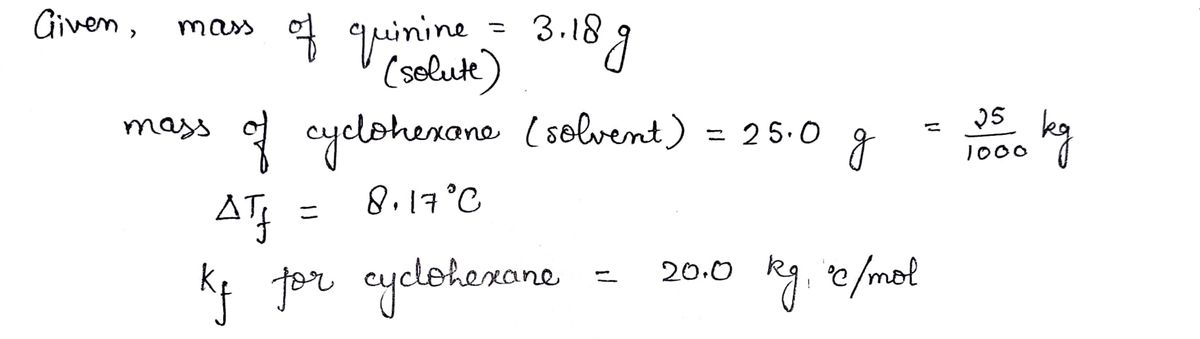 Given, mass of quinine = 3.18 g
(solute)
mass of cyclohexane (solvent) = 25.0 g = 25/1000 kg
ΔTf = 8.17°C
Kf for cyclohexane = 20.0 kg. °C/mol